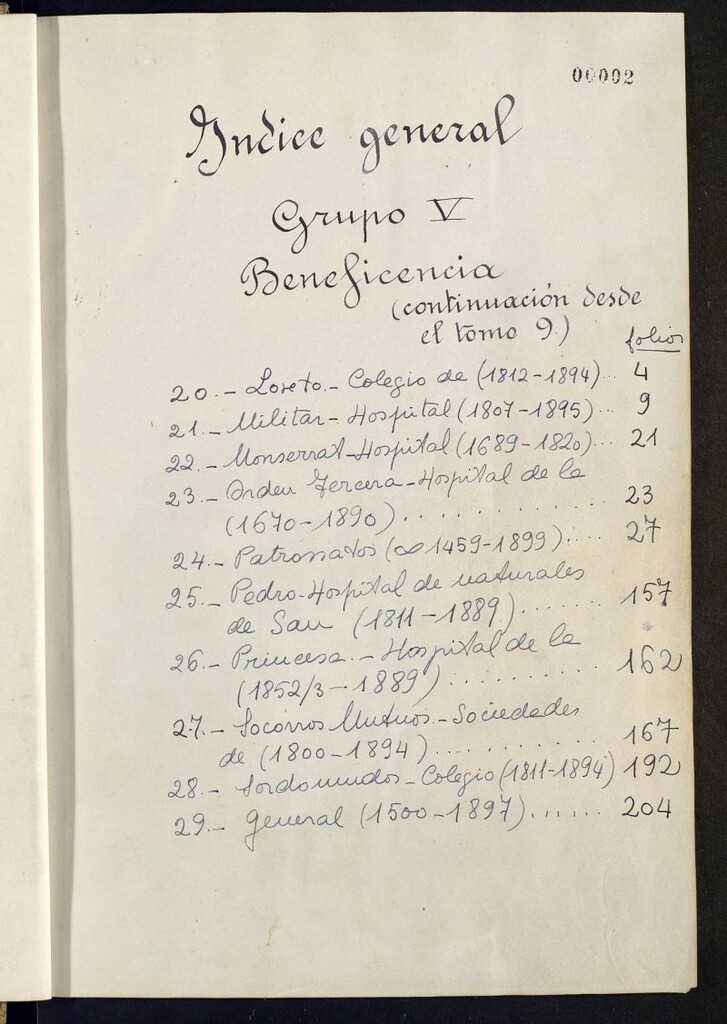 00002
Indice general
Grupo V
Beneficencia
(continuación desde
el tomo 9.)
folios
20.- Loreto.- Colegio de (1812-1894)... 4
21.- Militar-Hospital (1807-1895)... 9
22.- Monserrat-Hospital (1689-1820)... 21
23.- Orden Tercera-Hospital de la
(1670-1890)............. 23
24.- Patronatos (∞ 1459-1899)..... 27
25.- Pedro-Hospital de naturales
de San (1811-1889)....... 157
26.- Princesa.- Hospital de la
(1852/3-1889).......... 162
27.- Socorros Mutuos.-Sociedades
de (1800-1894)........... 167
28.- Sordomudos-Colegio (1811-1894) 192
29.- General (1500-1897)...... 204